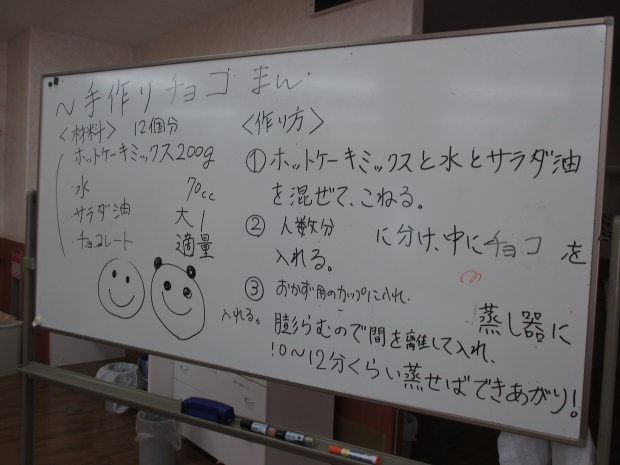 ~手作りチョコまん
<材料> 12個分
・ホットケーキミックス200g
・水 70cc
・サラダ油 大1
・チョコレート 適量
<作り方>
①ホットケーキミックスと水とサラダ油
を混ぜて、こねる。
② 人数分 に分け、中にチョコを
入れる。
③ おかず用のカップに入れ、 蒸し器に
入れる。膨らむので間を離して入れ、
10~12分くらい蒸せばできあがり!